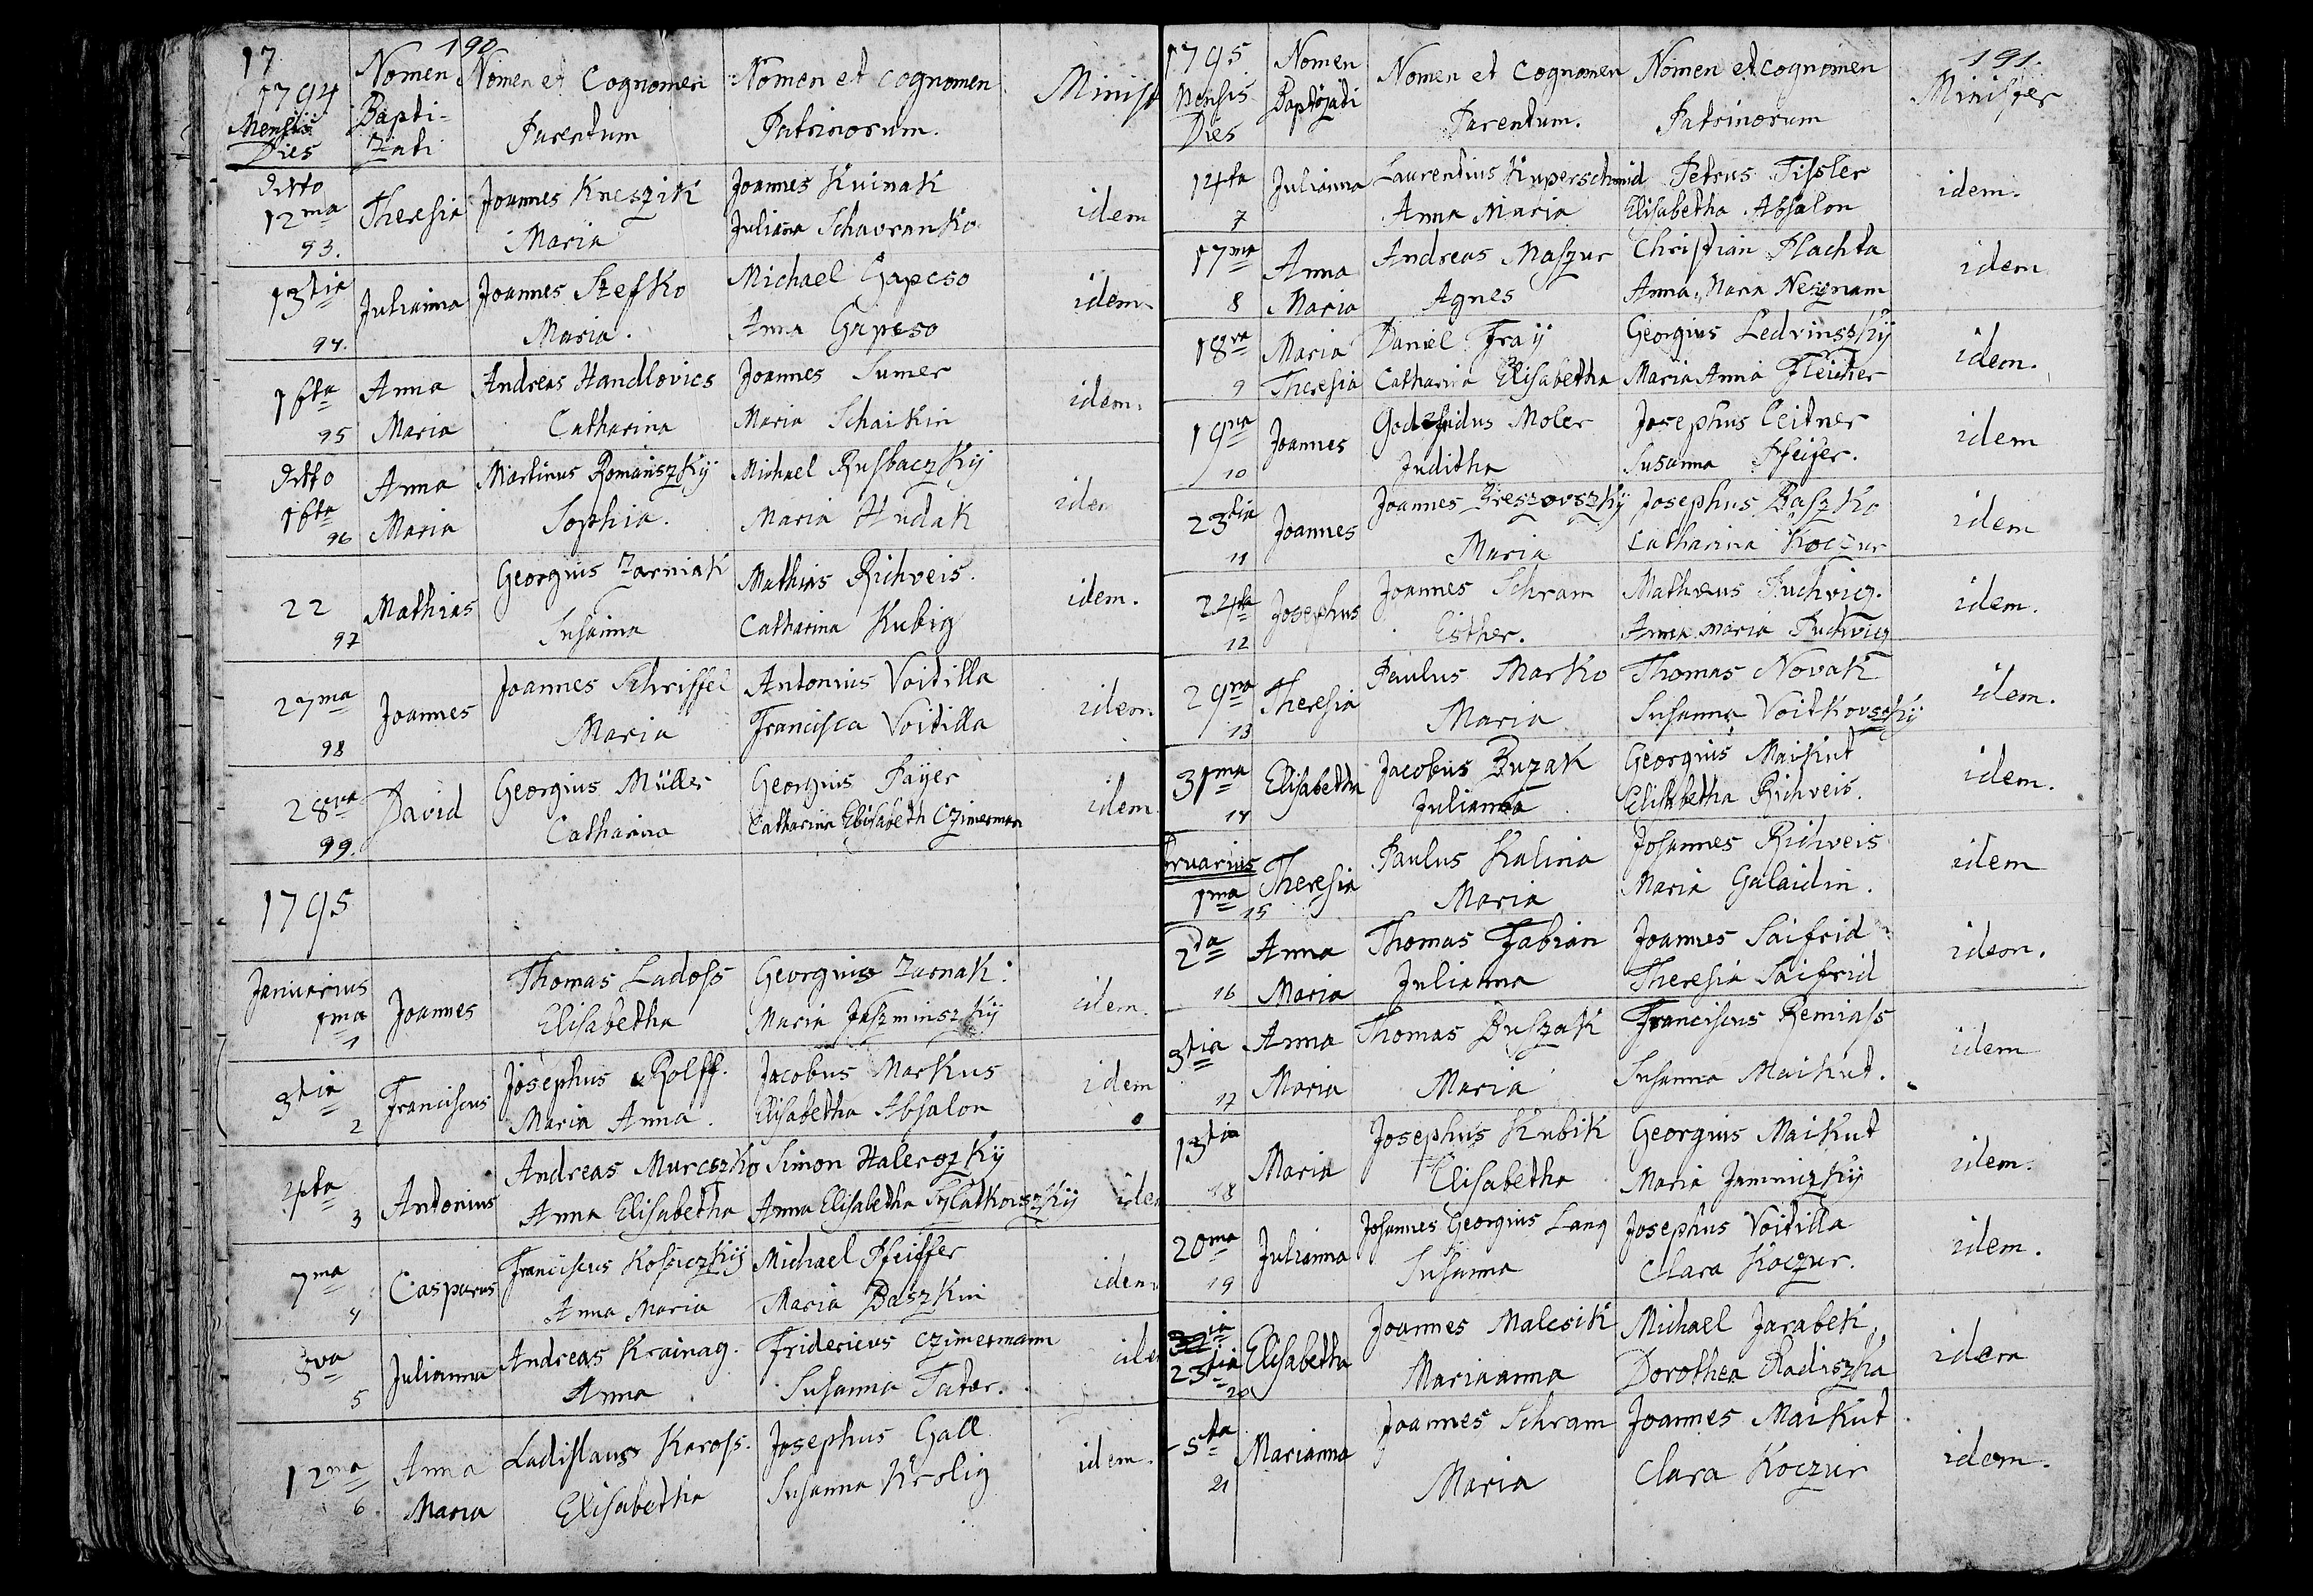 190
17
1794 Nomen Nomen et Cognomen Nomen et cognomen Minist
Mensis Bapti- Parentum Patrinorum.
Dies zati
Ditto Theresia Joannes Kneszik Joannes Kuinak idem
12ma Maria Juliana Schavranko
93.
13tia Julianna Joannes Szefko Michael Gapcso idem
94. Maria. Anna Gapcso
16ta Anna Andreas Handlovics Joannes Sumer idem.
95 Maria Catharina Maria Schaikin
Ditto Anna Martinus Romanszky Michael Rusbaczky idem
16ta Maria Sophia. Maria Hudak
96
22 Mathias Georgius Zarniak Mathias Richveis. idem.
97 Susanna Catharina Kubig
27ma Joannes Joannes Schriffel Antonius Voitilla idem
98 Maria Francisca Voitilla
28va David Georgius Müller Georgius Payer idem
99. Catharina Catharina Elisabeth Czimerman
1795
Januarius Joannes Thomas Ladoss Georgius Zarnak. idem.
1ma Elisabetha Maria Jaszminszky
1
3tia Franciscus Josephus Rolff. Jacobus Markus idem
2 Maria Anna. Elisabetha Absalon
4ta Antonius Andreas Murcszko Simon Halerszky idem
3 Anna Elisabetha Anna Elisabetha Szlatkovszky
7ma Casparus Franciscus Kosiczky Michael Pfeiffer idem
4 Anna Maria Maria Daszkin
8va Julianna Andreas Krainag. Fridericus Czimermann idem
5 Anna Susanna Tatar.
12ma Anna Ladislaus Kaross. Josephus Gall idem.
6. Maria Elisabetha Susanna Krolig
191.
1795 Nomen Nomen et Cognomen Nomen et cognomen Minister
Mensis Baptizati Parentum. Patrinorum
Dies
14ta Julianna Laurentius Kuperschmid Petrus Tissler idem.
7 Anna Maria Elisabetha Absalon
17ma Anna Andreas Maszur Christian Plachta idem
8 Maria Agnes Anna Maria Neugnam
18va Maria Daniel Fray Georgius Ledvinszky idem.
9 Theresia Catharina Elisabetha Maria Anna Fleicher
19na Joannes Godefridus Moler Josephus Ceitner idem
10 Juditha Susanna Pfeifer.
23tia Joannes Joannes Breszovszky Josephus Daszko idem
11 Maria Catharina Koczur
24ta Josephus Joannes Schram Matheus Puchvig. idem.
12 Esther. Anna Maria Puchvig
29na Theresia Paulus Marko Thomas Novak idem.
13 Maria Susanna Voitkovszky
31ma Elisabetha Jacobus Buzak Georgius Maikut idem.
14 Julianna Elisabetha Richveis.
bruarius Theresia Paulus Kalina Johannes Richveis idem
1ma Maria Maria Galaidin.
15
2da Anna Thomas Fabian Joannes Saifrid idem.
16 Maria Julianna Theresia Saifrid
3tia Anna Thomas Buszak Franciscus Remiass idem
17 Maria Maria Susanna Maikut.
13tia Maria Josephus Kubik Georgius Maikut idem.
18 Elisabetha Maria Jamniczky
20ma Julianna Johannes Georgius Lang Josephus Voitilla idem.
19 Susanna Clara Koczur.
23tia Elisabetha Joannes Malcsik Michael Jarabek, idem
20 Mariaanna Dorothea Radiszka
5ta Marianna Joannes Schram Joannes Maikut idem.
21 Maria Clara Koczur